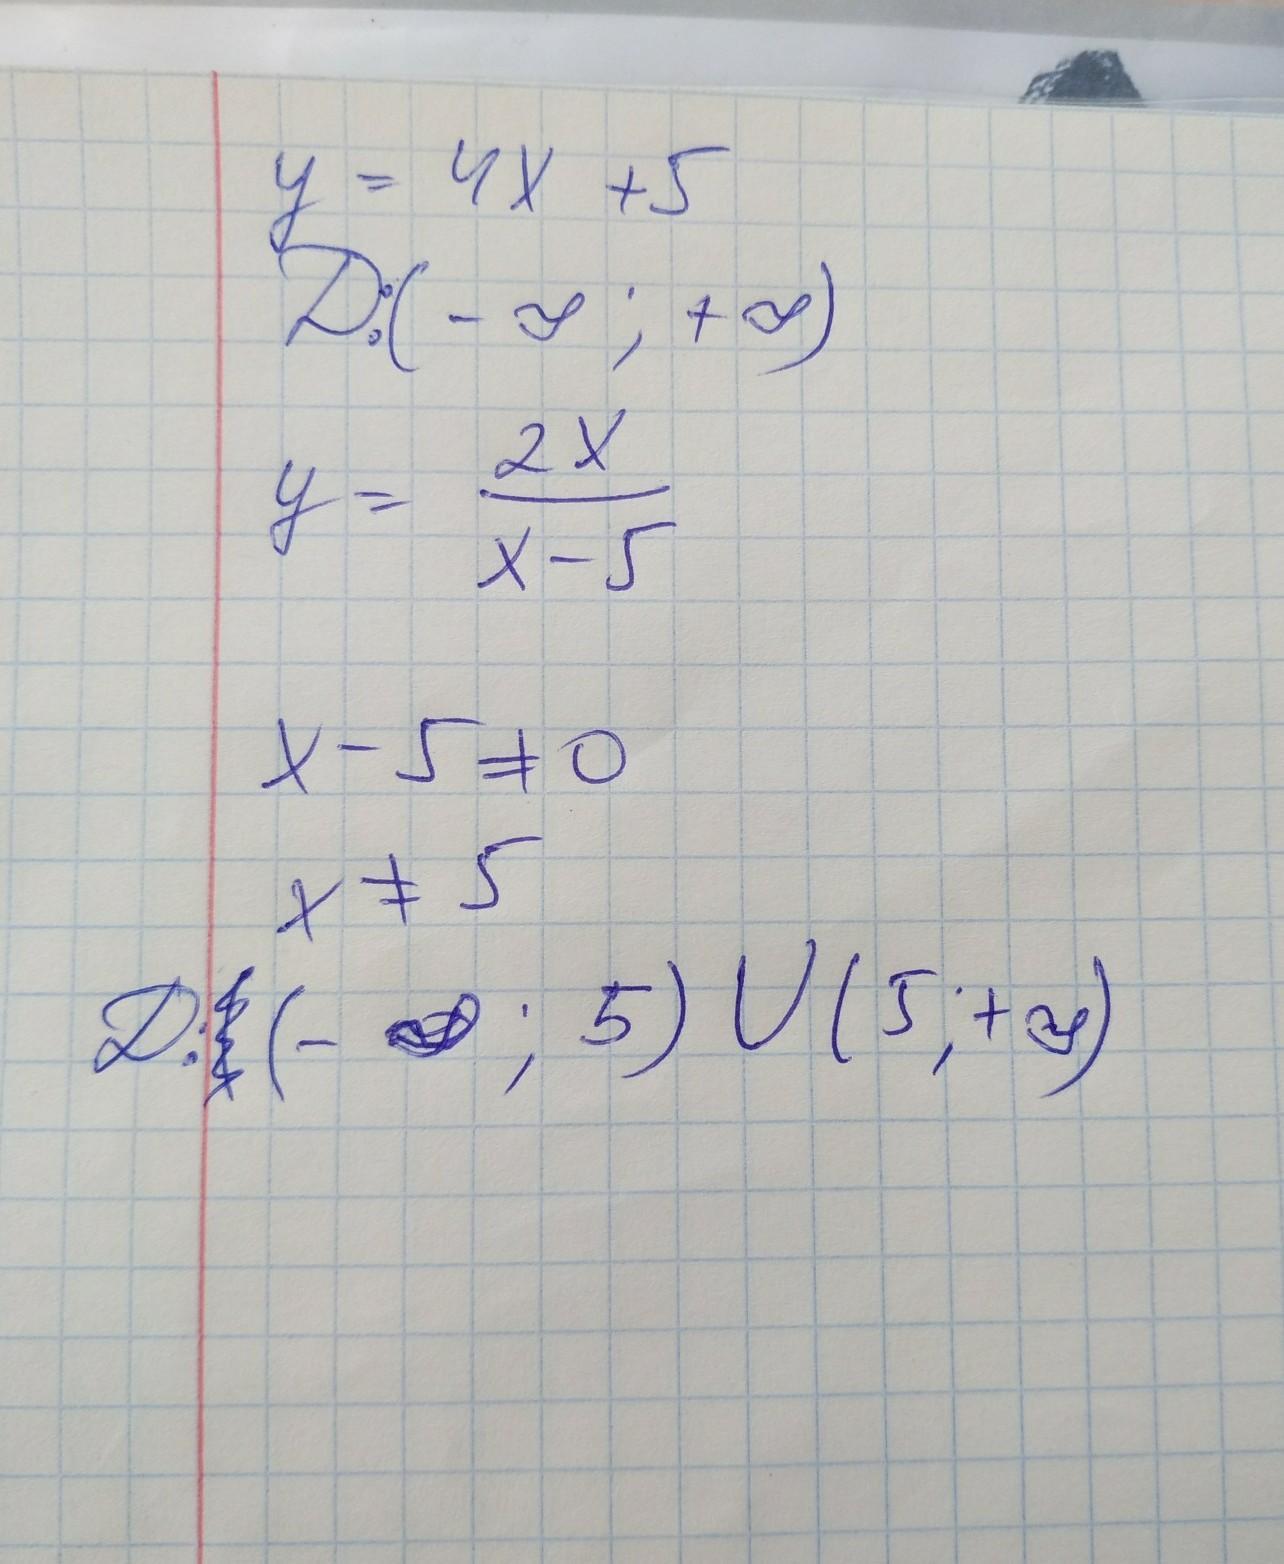 y = 4x + 5
D:(-∞; +∞)
y = 2x / x-5
x-5≠0
x≠5
D:(-∞; 5) U (5; +∞)